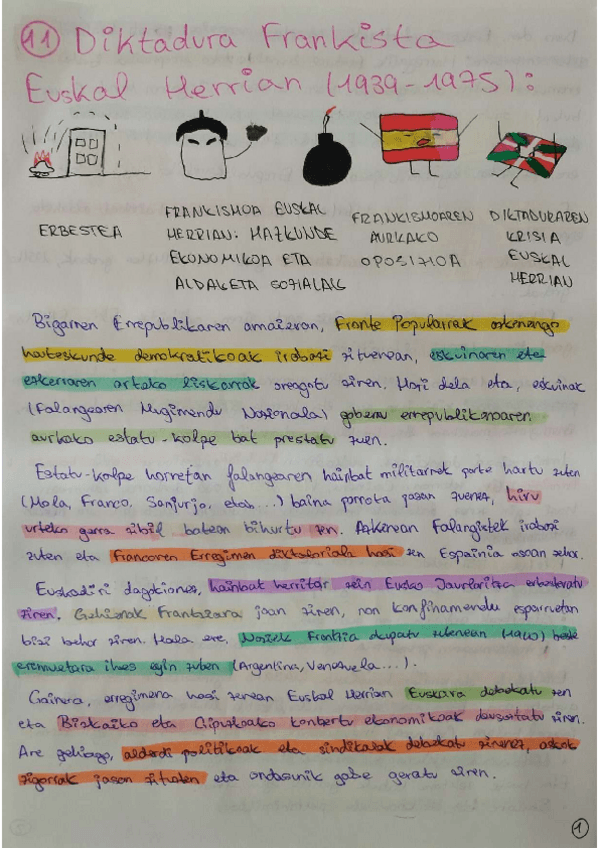 11 Diktadura Frankista
Euskal Herrian (1939-1975):
ERBESTEA
FRANKISMOA EUSKAL
HERRIAN: HAZKUNDE
EKONOMIKOA ETA
ALDAKETA SOZIALAK
FRANKISMOAREN
AURKAKO
OPOSIZIOA
DIKTADURAREN
KRISIA
EUSKAL
HERRIAN
Bigarren Errepublikaren amaieran, Fronte Popularrak azkenengo
hauteskunde demokratikoak irabazi zituenean, eskuinaren eta
ezkerraren arteko liskarrak areagotu ziren. Hori dela eta, eskuinak
(Falangearen Mugimendu Nazionala) gobernu errepublikanoaren
aurkako estatu-kolpe bat prestatu zuen.
Estatu-kolpe horretan falangearen hainbat militarrek parte hartu zuten
(Mola, Franco, Sanjurjo, etab...) baina porrota jasan zuenez, hiru
urteko gerra zibil batean bihurtu zen. Azkenean Falangistek irabazi
zuten eta Francoren Erregimen diktatoriala hasi zen Espainia osoan zehar.
Euskadiri dagokionez, hainbat herritar zein Eusko Jaurlaritza erbesteratu
ziren. Gehienak Frantziara joan ziren, non konfinamendu esparruetan
bizi behar ziren. Hala ere, Naziek Frantzia okupatu zutenean (1940) beste
eremuetara ihes egin zuten (Argentina, Venezuela...).
Gainera, erregimena hasi zenean Euskal Herrian Euskara debekatu zen
eta Bizkaiko eta Gipuzkoako kontzertu ekonomikoak deuseztatu ziren.
Are gehiago, alderdi politikoak eta sindikatuak debekatu zirenez, askok
zigorrak jasan zituzten eta ondasunik gabe geratu ziren.
1